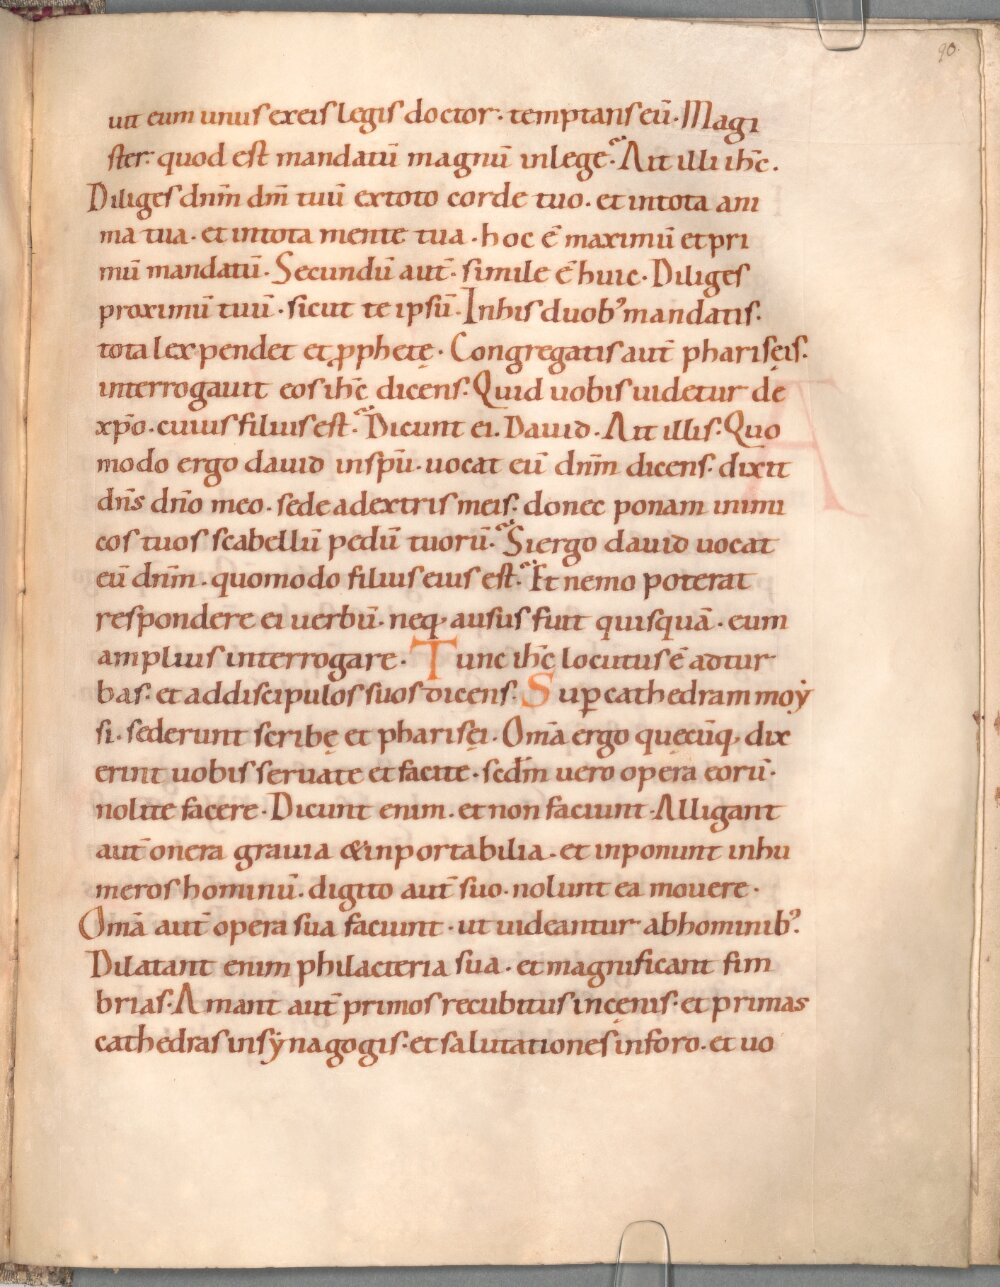 90.
uit eum unus ex eis legis doctor· temptans eū· Magi
ster· quod est mandatū magnū in lege? Ait illi ihc̄.
Diliges dn̄m dm̄ tuū ex toto corde tuo. et in tota ani
ma tua. et in tota mente tua. hoc ē maximū et pri
mū mandatū. Secundū aut̄· simile ē huic. Diliges
proximū tuū· sicut te ipsū. In his duob᾽ mandatis·
tota lex pendet et ꝓphetę. Congregatis aut̄ pharisęis·
interrogauit eos ihc̄ dicens· Quid uobis uidetur de
xp̄o. cuius filius est? Dicunt ei. Dauid. Ait illis· Quo
modo ergo dauid in sp̄u. uocat eū dn̄m dicens· dixit
dn̄s dn̄o meo. sede a dextris meis· donec ponam inimi
cos tuos scabellū pedū tuorū? Si ergo dauid uocat
eū dn̄m. quomodo filius eius est? Et nemo poterat
respondere ei uerbū. neq· ausus fuit quisquā· eum
amplius interrogare. Tunc ihc̄ locutus ē ad tur
bas· et ad discipulos suos dicens· Suꝑ cathedram moẏ
si. sederunt scribę et pharisęi. Om̄a ergo quęcūq· dix
erint uobis seruate et facite. scd̄m uero opera eorū·
nolite facere. Dicunt enim. et non faciunt. Alligant
aut̄ onera grauia & inportabilia. et inponunt in hu
meros hominū. digito aut̄ suo. nolunt ea mouere.
Om̄a aut̄ opera sua faciunt· ut uideantur ab hominib᾽.
Dilatant enim philacteria sua. et magnificant fim
brias. Amant aut̄ primos recubitus in cęnis· et primas
cathedras in sẏnagogis· et salutationes in foro. et uo